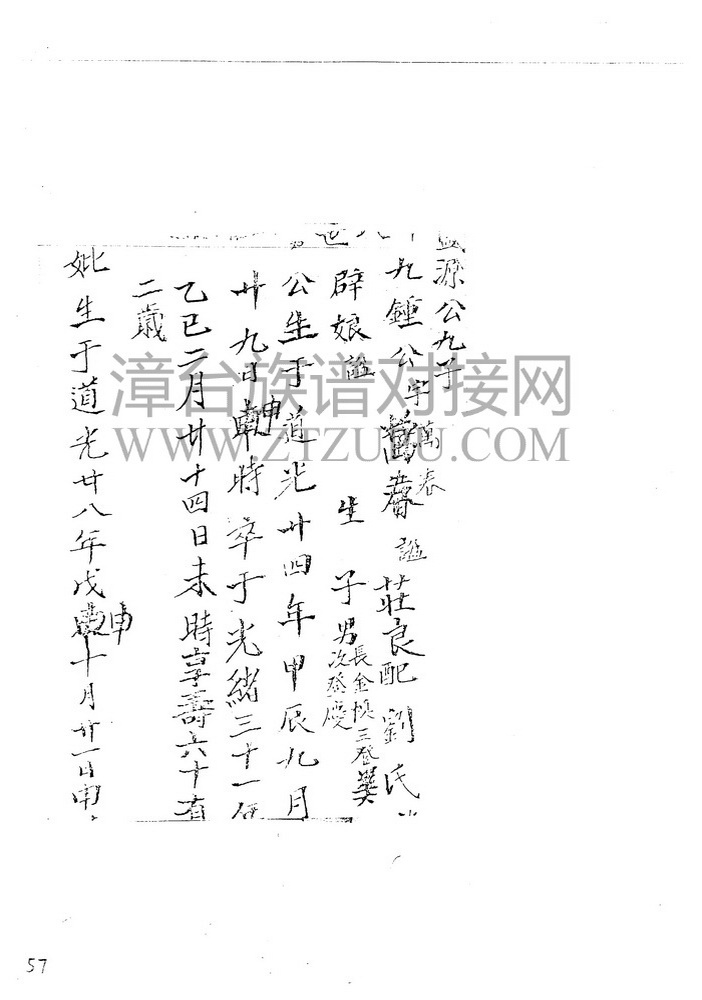 源公九子
九鍾公字萬春諡莊良配劉氏
辟娘諡 生 子男長金楨三登
次登慶
公生于道光廿四年甲辰九月
廿九日申時卒于光緒三十一
乙巳二月廿十四日未時享壽六十有
二歲
妣生于道光廿八年戊申十月廿一日申
漳台族谱对接网
WWW.ZTZUPU.COM
57